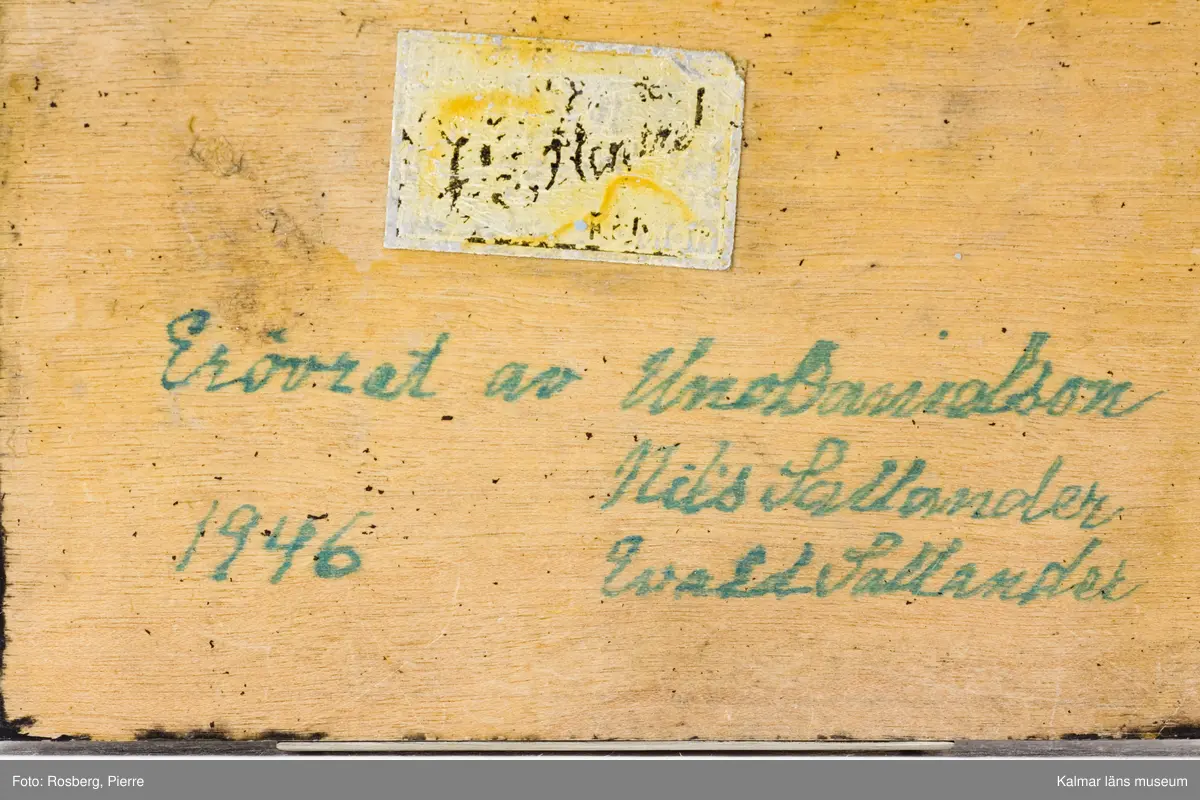 Erövret av Uno Danielson
Nils Sallander
1946 Evald Sallander
Foto: Rosberg, Pierre
Kalmar läns museum